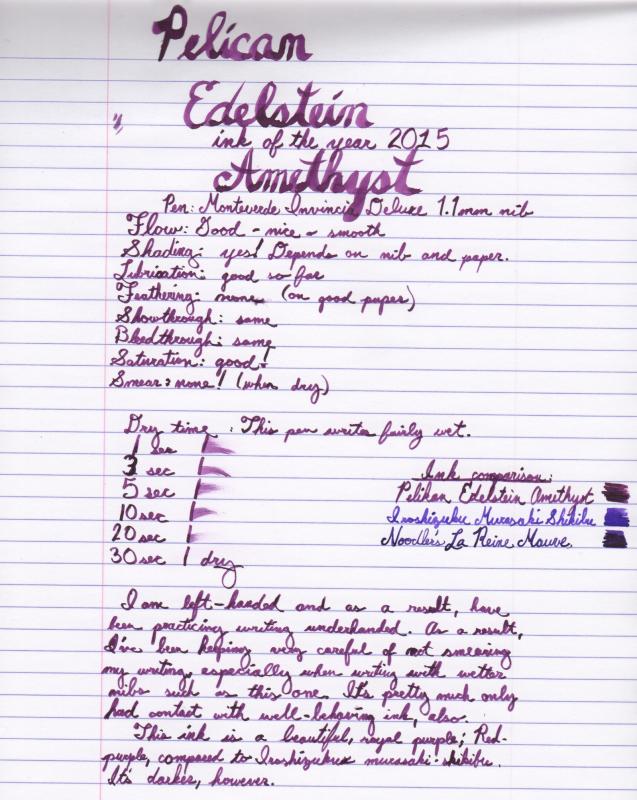 Pelican
Edelstein
ink of the year 2015
Amethyst
Pen: Monteverde Invincia Deluxe 1.1mm nib
Flow: Good - nice & smooth
Shading: yes! Depends on nib and paper.
Lubrication: good so far
Feathering: none (on good paper)
Showthrough: same
Bleedthrough: same
Saturation: good!
Smear: none! (when dry)
Dry time: This pen writes fairly wet.
1 sec
3 sec
5 sec
10 sec
20 sec
30 sec dry
Ink comparison:
Pelikan Edelstein Amethyst
Iroshizuku Murasaki Shikibu
Noodler's La Reine Mauve
I am left-handed and as a result, have
been practicing writing underhanded. As a result,
I've been keeping very careful of not smearing
my writing, especially when writing with wetter
nibs such as this one. It's pretty much only
had contact with well-behaving ink, also.
This ink is a beautiful, royal purple; Red-
purple, compared to Iroshizukux murasaki-shikibu.
It's darker, however.